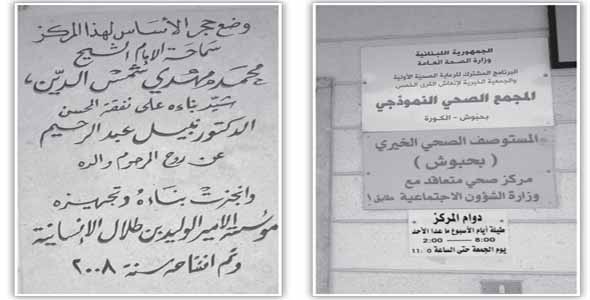 وضع حجر الأساس لهذا المركز
سماحة الإمام الشيخ
محمد مهدي شمس الدين،
شيّد بناءه على نفقة المحسن
الدكتور نبيل عبد الرحيم
عن روح المرحوم والده
وأنجزت بناءه وتجهيزه
مؤسسة الأمير الوليد بن طلال الإنسانية
وتم افتتاحه سنة ٢٠٠٨
الجمهورية اللبنانية
وزارة الصحة العامة
البرنامج المشترك للرعاية الصحية الأولية
والجمعية الخيرية لإنعاش القرى الخمس
المجمع الصحي النموذجي
بحبوش - الكورة
المستوصف الصحي الخيري
( بحبوش )
مركز صحي متعاقد مع
وزارة الشؤون الاجتماعية طابق ١
دوام المركز
طيلة أيام الأسبوع ما عدا الأحد
8:00 — 2:00
يوم الجمعة حتى الساعة